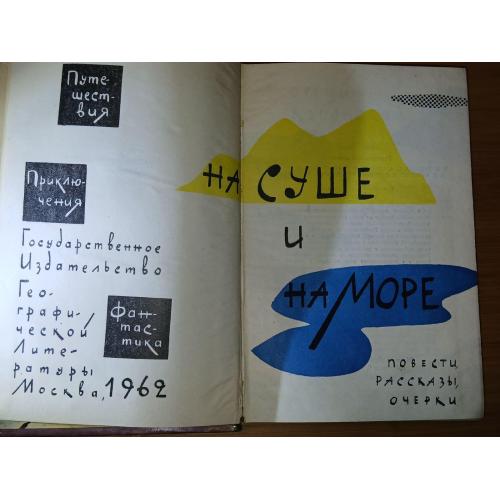 Путе-
шест-
вия
Приклю-
чения
Государственное
Издательство
Гео-
графи-
ческой
Лите-
ратуры
Москва, 1962
Фан-
тас-
тика
НА СУШЕ
И
НА МОРЕ
ПОВЕСТИ,
РАССКАЗЫ,
ОЧЕРКИ